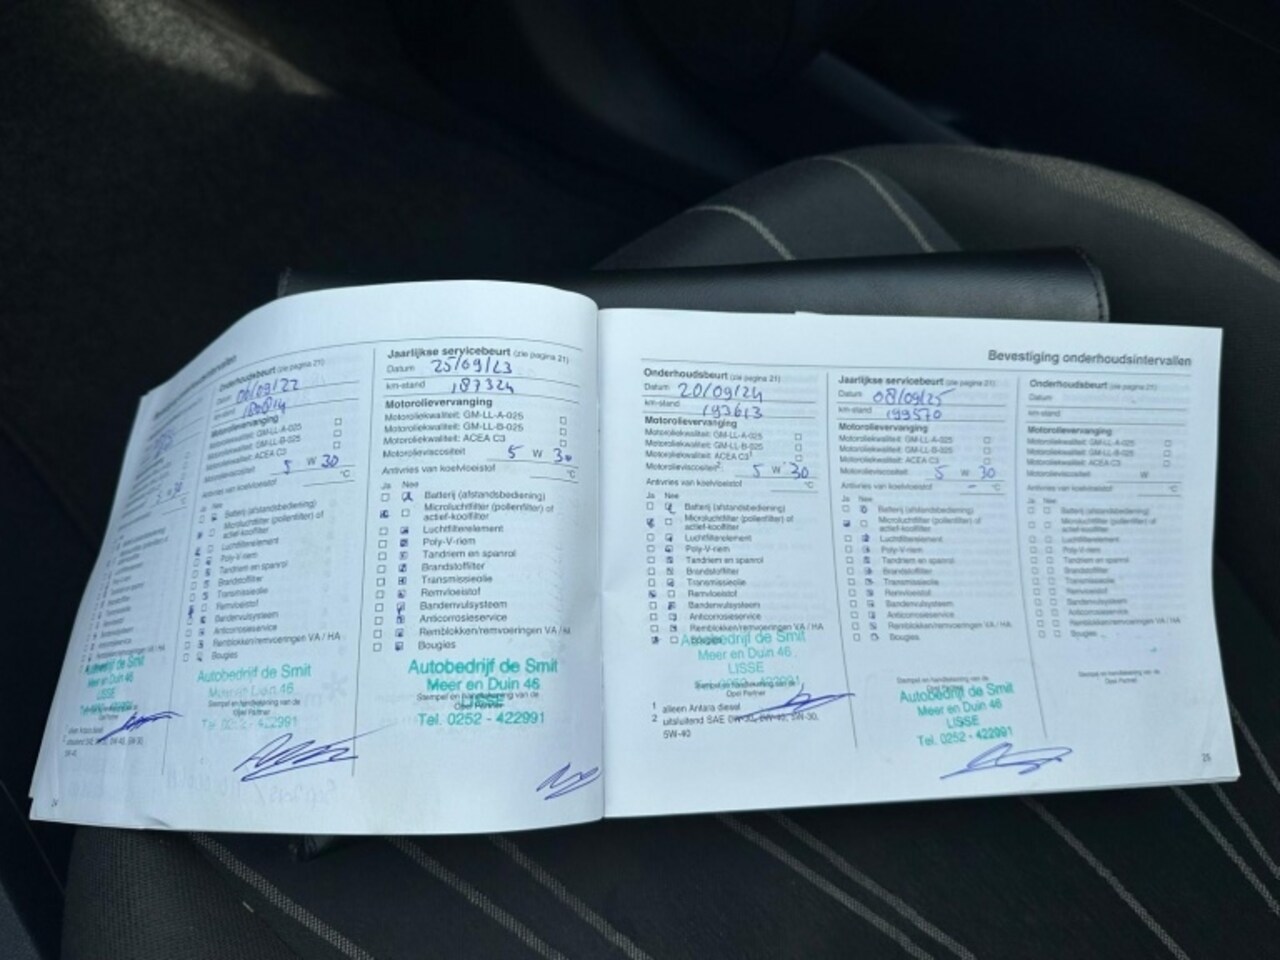 Onderhoudsbeurt (zie pagina 21)
Datum 06/09/22
km-stand
Motorolievervanging
Motoroliekwaliteit: GM-LL-A-025
Motoroliekwaliteit: GM-LL-B-025
Motoroliekwaliteit: ACEA C3
Motorolieviscositeit 5 W 30
Antivries van koelvloeistof °C
Ja Nee
Batterij (afstandsbediening)
Microluchtfilter (pollenfilter) of
actief-koolfilter
Luchtfilterelement
Poly-V-riem
Tandriem en spanrol
Brandstoffilter
Transmissieolie
Remvloeistof
Bandenvulsysteem
Anticorrosieservice
Remblokken/remvoeringen VA / HA
Bougies
Autobedrijf de Smit
Meer en Duin 46
Stempel en handtekening van de
Opel Partner
Tel. 0252 - 422991
24
Jaarlijkse servicebeurt (zie pagina 21)
Datum 25/09/23
km-stand 187324
Motorolievervanging
Motoroliekwaliteit: GM-LL-A-025
Motoroliekwaliteit: GM-LL-B-025
Motoroliekwaliteit: ACEA C3
Motorolieviscositeit 5 W 30
Antivries van koelvloeistof °C
Ja Nee
Batterij (afstandsbediening)
Microluchtfilter (pollenfilter) of
actief-koolfilter
Luchtfilterelement
Poly-V-riem
Tandriem en spanrol
Brandstoffilter
Transmissieolie
Remvloeistof
Bandenvulsysteem
Anticorrosieservice
Remblokken/remvoeringen VA / HA
Bougies
Autobedrijf de Smit
Meer en Duin 46
Stempel en handtekening van de
Opel Partner
Tel. 0252 - 422991
Bevestiging onderhoudsintervallen
Onderhoudsbeurt (zie pagina 21)
Datum 20/09/24
km-stand 193613
Motorolievervanging
Motoroliekwaliteit: GM-LL-A-025
Motoroliekwaliteit: GM-LL-B-025
Motoroliekwaliteit: ACEA C3¹
Motorolieviscositeit²: 5 W 30
Antivries van koelvloeistof °C
Ja Nee
Batterij (afstandsbediening)
Microluchtfilter (pollenfilter) of
actief-koolfilter
Luchtfilterelement
Poly-V-riem
Tandriem en spanrol
Brandstoffilter
Transmissieolie
Remvloeistof
Bandenvulsysteem
Anticorrosieservice
Remblokken/remvoeringen VA / HA
Bougies
Autobedrijf de Smit
Meer en Duin 46
LISSE
Stempel en handtekening van de
Opel Partner
1 alleen Antara diesel
2 uitsluitend SAE 0W-30, 0W-40, 5W-30,
5W-40
Jaarlijkse servicebeurt (zie pagina 21)
Datum 08/09/25
km-stand 199570
Motorolievervanging
Motoroliekwaliteit: GM-LL-A-025
Motoroliekwaliteit: GM-LL-B-025
Motoroliekwaliteit: ACEA C3
Motorolieviscositeit 5 W 30
Antivries van koelvloeistof - °C
Ja Nee
Batterij (afstandsbediening)
Microluchtfilter (pollenfilter) of
actief-koolfilter
Luchtfilterelement
Poly-V-riem
Tandriem en spanrol
Brandstoffilter
Transmissieolie
Remvloeistof
Bandenvulsysteem
Anticorrosieservice
Remblokken/remvoeringen VA / HA
Bougies
Stempel en handtekening van de
Autobedrijf de Smit
Meer en Duin 46
LISSE
Tel. 0252 - 422991
Onderhoudsbeurt (zie pagina 21)
Datum
km-stand
Motorolievervanging
Motoroliekwaliteit: GM-LL-A-025
Motoroliekwaliteit: GM-LL-B-025
Motoroliekwaliteit: ACEA C3
Motorolieviscositeit W
Antivries van koelvloeistof °C
Ja Nee
Batterij (afstandsbediening)
Microluchtfilter (pollenfilter) of
actief-koolfilter
Luchtfilterelement
Poly-V-riem
Tandriem en spanrol
Brandstoffilter
Transmissieolie
Remvloeistof
Bandenvulsysteem
Anticorrosieservice
Remblokken/remvoeringen VA / HA
Bougies
Stempel en handtekening van de
Opel Partner
25